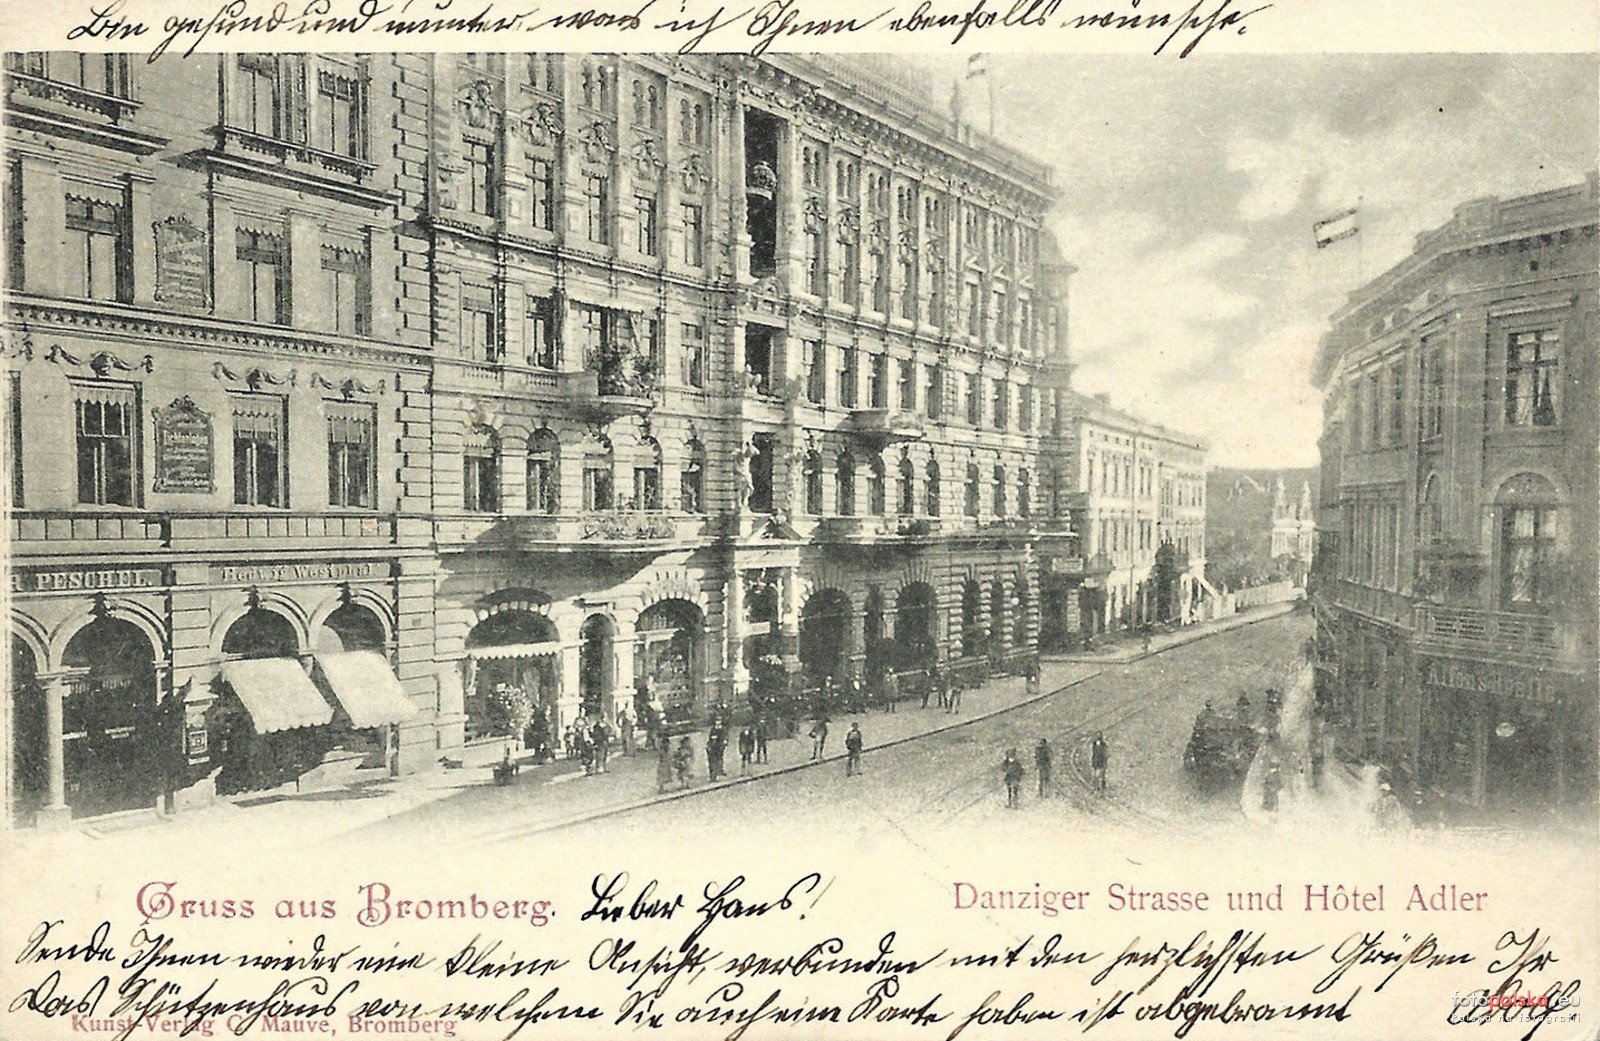 Bin gesund und munter, was ich Ihnen ebenfalls wünsche.
PESCHEL.
Gruss aus Bromberg.
Lieber Hans!
Danziger Strasse und Hôtel Adler
Sende Ihnen wieder eine kleine Ansicht, verbunden mit den herzlichsten Grüßen Ihr
Das Schützenhaus von welchem Sie auch eine Karte haben ist abgebrannt
Kunst-Verlag C. Mauve, Bromberg
fotopolska.eu
polska na fotografii